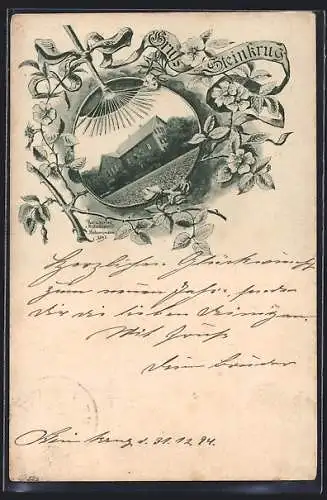 Gruß
Steinkrug
Herzlichen Glückwunsch
zum neuen Jahr sendet
dir die lieben
Mit Gruß
Dein Bruder
Steinkrug d. 31.12.94.